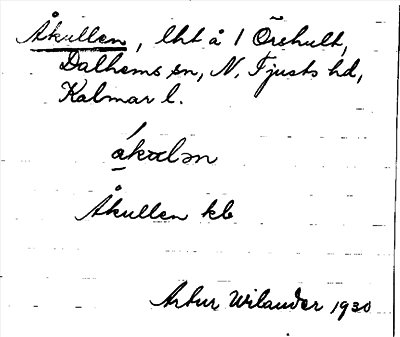 Åkullen, lht å 1 Örshult,
Dalhems sn, N. Tjusts hd,
Kalmar l.
Åkullen kb
Artur Wilander 1930